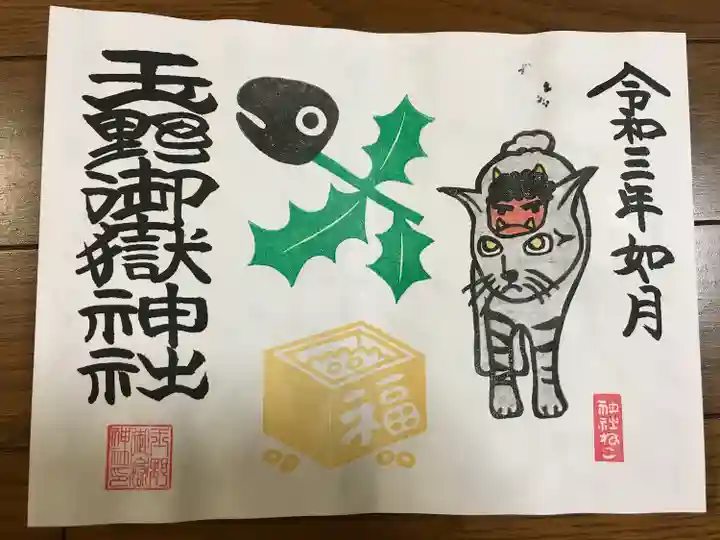 令和三年如月
神社ねこ
福
玉野御嶽神社